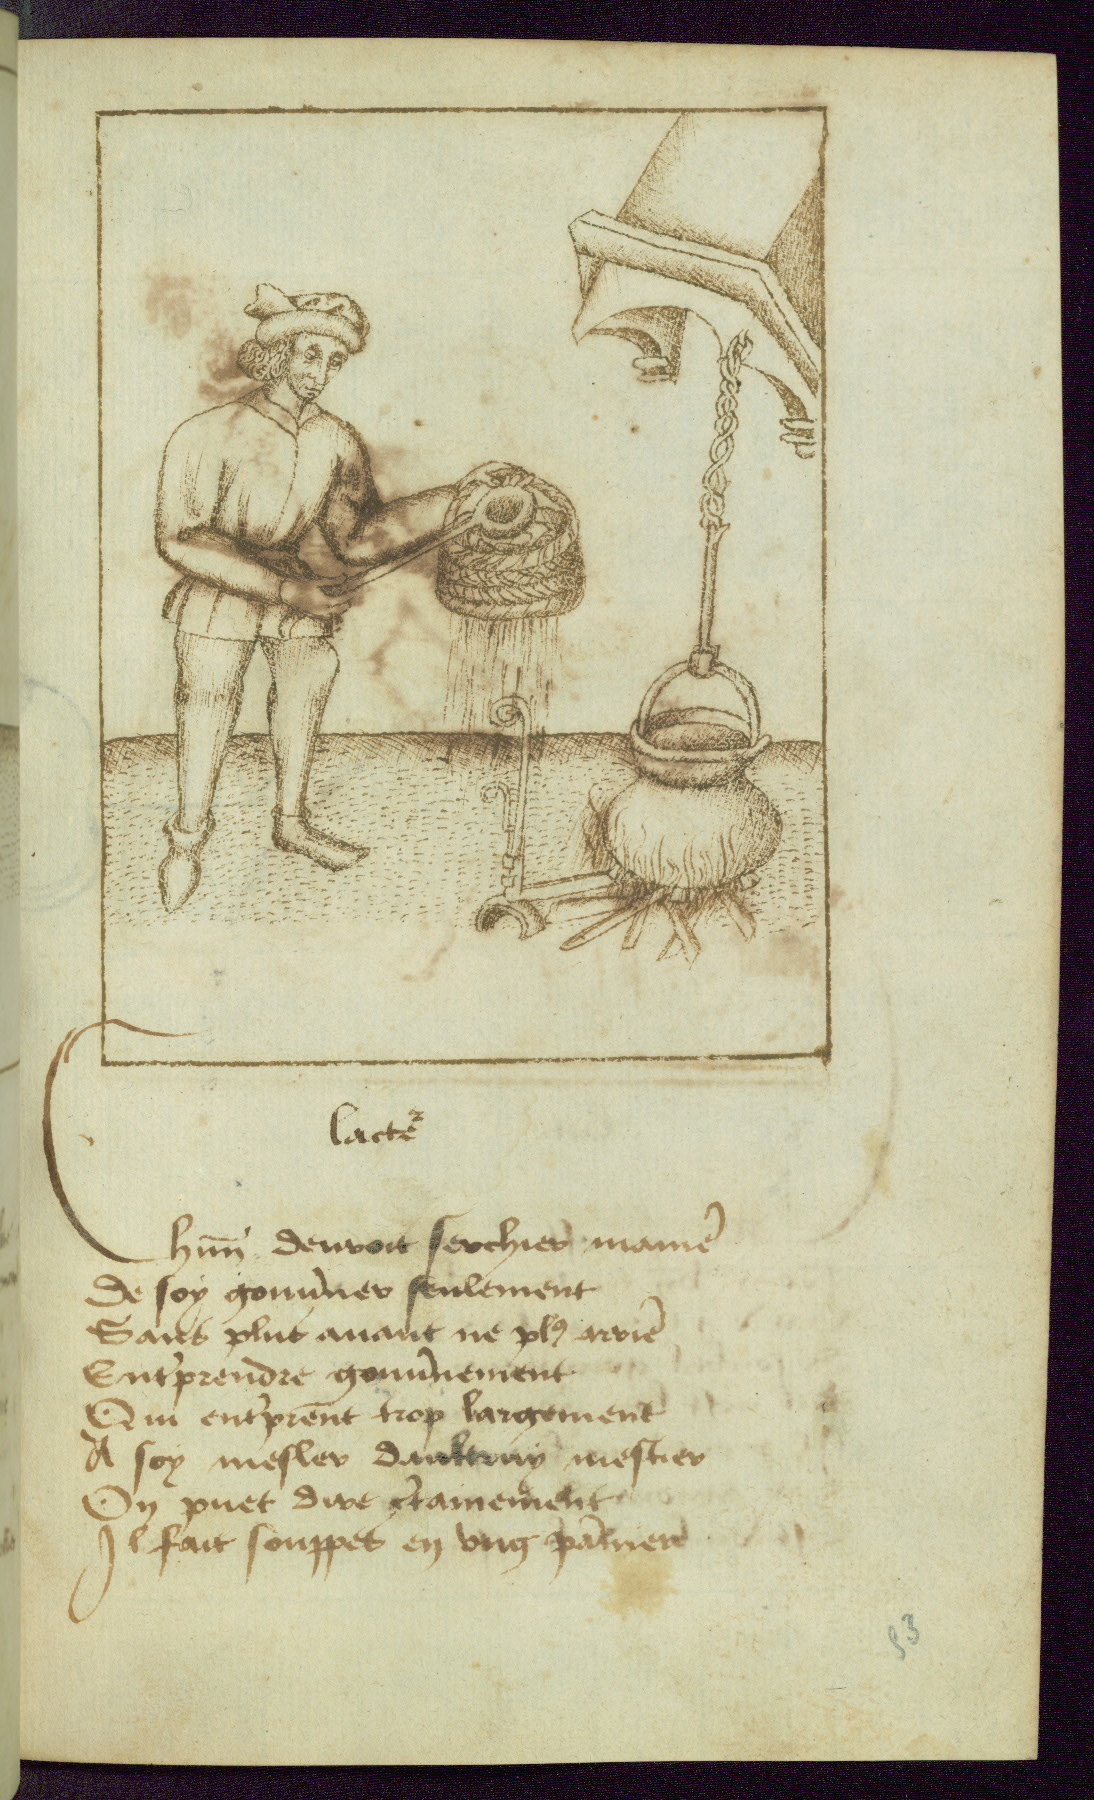 lacteʳ
Chūn deuroit serchier manieʳ
De soy gouuʼner seulement
Sans plut auant ne plꝰ arrieʳ
Entʼprendre gouuʼnement
Qui entʼprēnt trop largement
A soy mesler daultruy mestier
On puet dire cʼtainement
Il fait souppes en vng panier
53